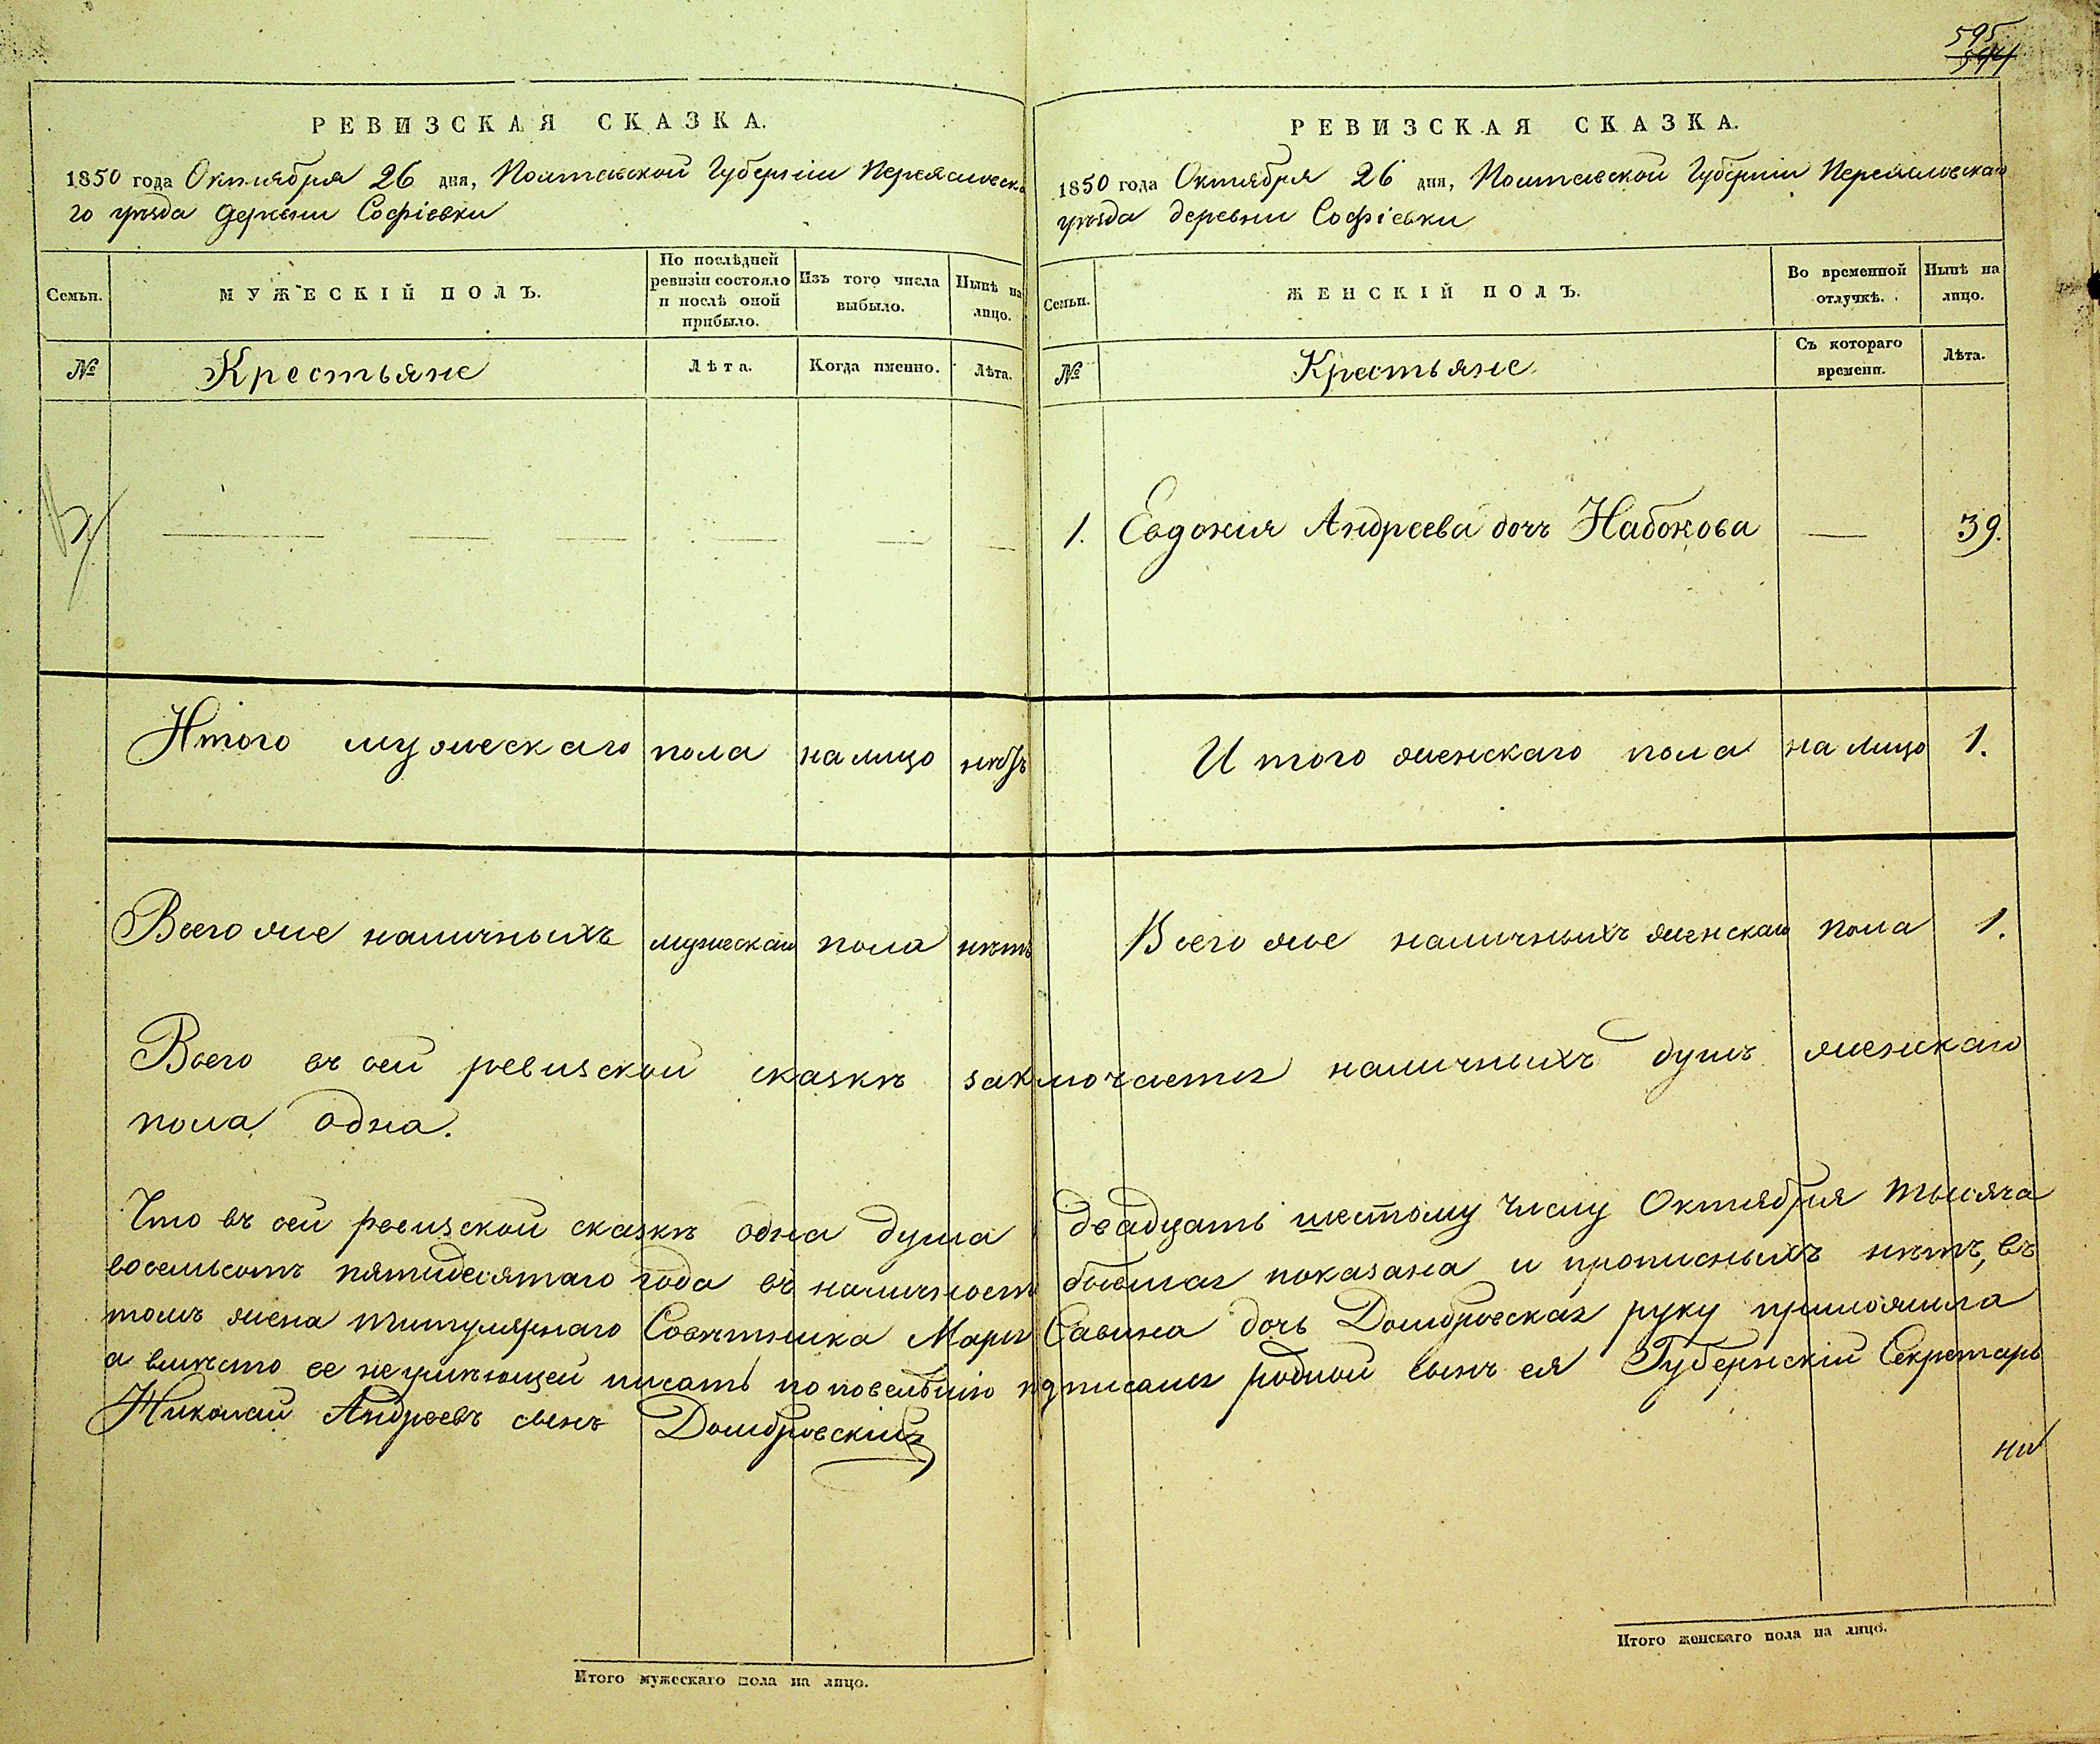 595.
594
РЕВИЗСКАЯ СКАЗКА.
1850 года Октября 26 дня, Полтавской Губерніи Переяславска
го уѣзда деревни Софіевки
Семьи.
МУЖЕСКІЙ ПОЛЪ.
По послѣдней
ревизіи состояло
и послѣ оной
прибыло.
Изъ того числа
выбыло.
Нынѣ на
лицо.
№
Крестьяне
Лѣта.
Когда именно.
Лѣта.
Итого мужескаго пола налицо нѣтъ
Всего же наличныхъ мужескаго пола нѣтъ
РЕВИЗСКАЯ СКАЗКА.
1850 года Октября 26 дня, Полтавской Губерніи Переяславскаго
уѣзда деревни Софіевки
Семьи.
ЖЕНСКІЙ ПОЛЪ.
Во временной
отлучкѣ.
Нынѣ на
лицо.
№
Крестьяне
Съ котораго
времени.
Лѣта.
1. Евдокія Андреева дочь Набокова — 39.
Итого женскаго пола налицо 1.
Всего же наличныхъ женскаго пола 1.
Всего въ сей ревизской сказкѣ заключается наличныхъ душъ женскаго
пола одна.
Что въ сей ревизской сказкѣ одна душа двадцать шестому числу Октября тысяча
восемьсотъ пятидесятаго года въ наличности бывшая показана и прописныхъ нѣтъ, въ
томъ жена титулярнаго Совѣтника Марья Савина дочь Домбровская руку приложила
а вмѣсто ее неумѣющей писать по повелѣнію подписался родной сынъ ея Губернскій Секретарь
Николай Андреевъ сынъ Домбровскій
Итого мужескаго пола на лицо.
Итого женскаго пола на лицо.